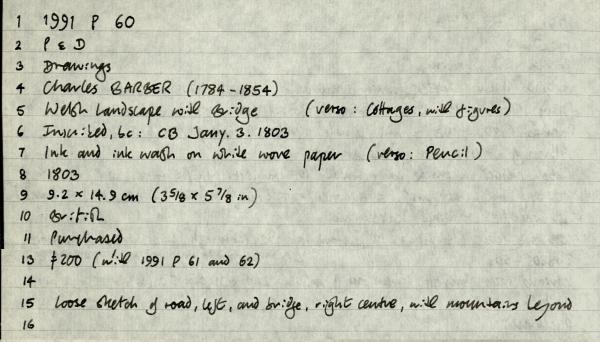 1 1991 P 60
2 P & D
3 Drawings
4 Charles BARBER (1784-1854)
5 Welsh Landscape with Bridge (verso: Cottages, with figures)
6 Inscribed, bc: CB Jany. 3. 1803
7 Ink and ink wash on white wove paper (verso: Pencil)
8 1803
9 9.2 x 14.9 cm (3 5/8 x 5 7/8 in)
10 British
11 Purchased
13 £200 (with 1991 P 61 and 62)
14
15 Loose sketch of road, left, and bridge, right centre, with mountains beyond
16